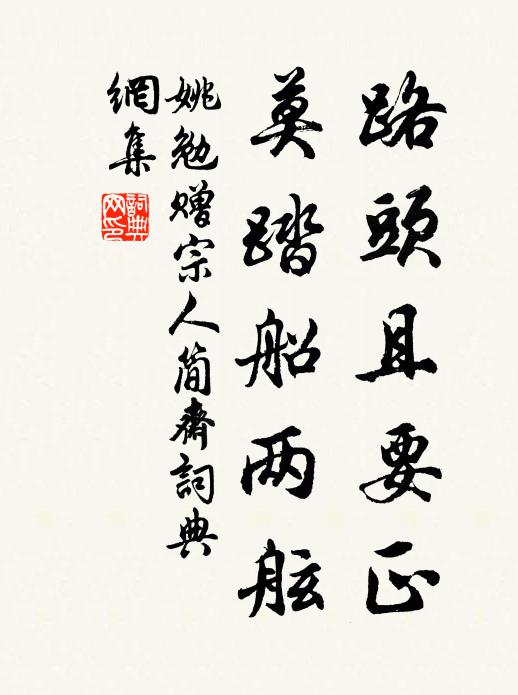 路頭且要正
莫踏船两舷
姚勉赠宗人简齋詞典
網集
詞典网印